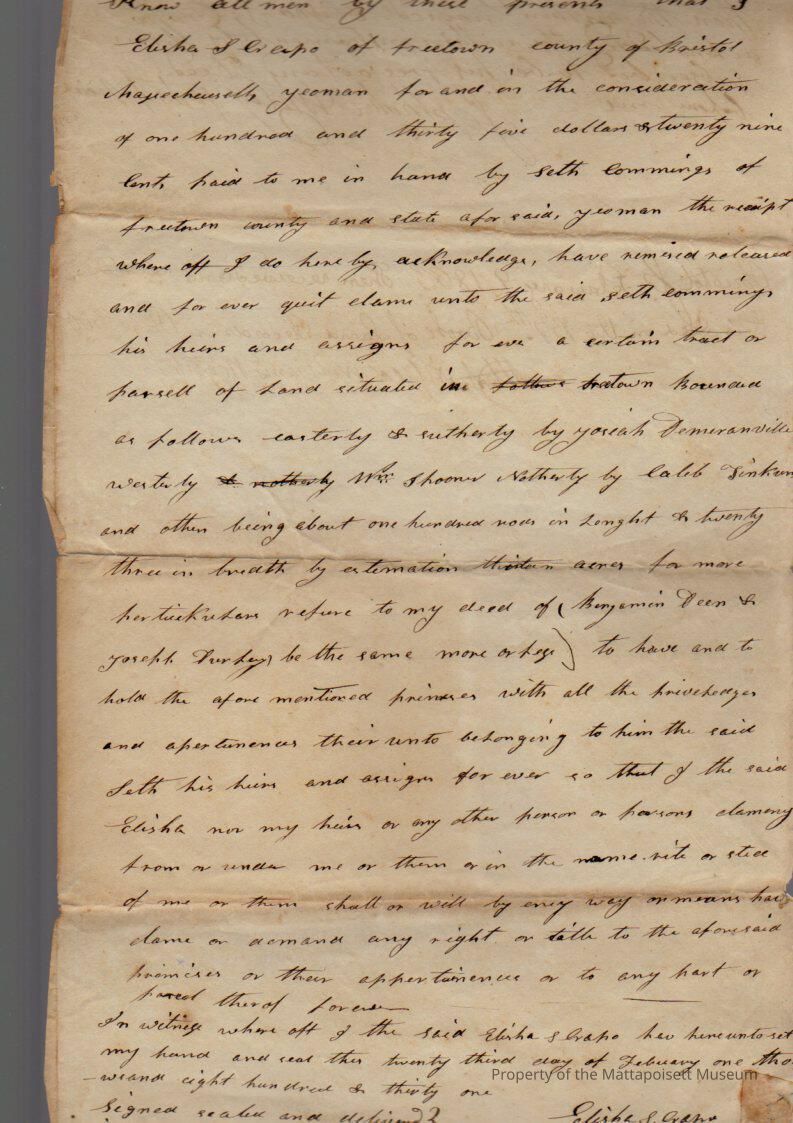 Know all men by these presents that I
Elisha S Crapo of freetown county of Bristol
Massechusetts yeoman for and in the consideration
of one hundred and thirty five dollars & twenty nine
Cents paid to me in hand by Seth Commings of
freetown county and state afor said, yeoman the receipt
where off I do hereby acknowledge, have remised released
and for ever quit clame unto the said seth commings
his heirs and assigns for ever a certain tract or
parsell of Land situated in Bounded
as follows easterly & sutherly by Josiah Demeranville
westerly & notherly Wm Shoover Notherly by Caleb Tinkum
and others being about one hundred rods in Lenght & twenty
three in bredth by estemation thirteen acres for more
pertickulars refure to my deed of ( Benjamin Deen &
Joseph be the same more or Less ) to have and to
hold the afore mentioned primses with all the priveledges
and apertunences their unto belonging to him the said
Seth his heirs and assigns for ever so that I the said
Elisha nor my heirs or any other person or parsons clameng
from or under me or them or in the name rite or sted
of me or them shall or will by eney way or means have
clame or demand any right or title to the aforesaid
promises or their appertunence or to any part or
parcel therof forever
In witness where off I the said Elisha S Crapo hav hereunto set
my hand and seal this twenty third day of February one thou
-wsand eight hundred & thirty one
Signed sealed and deliverd
Elisha S. Crapo
Property of the Mattapoisett Museum